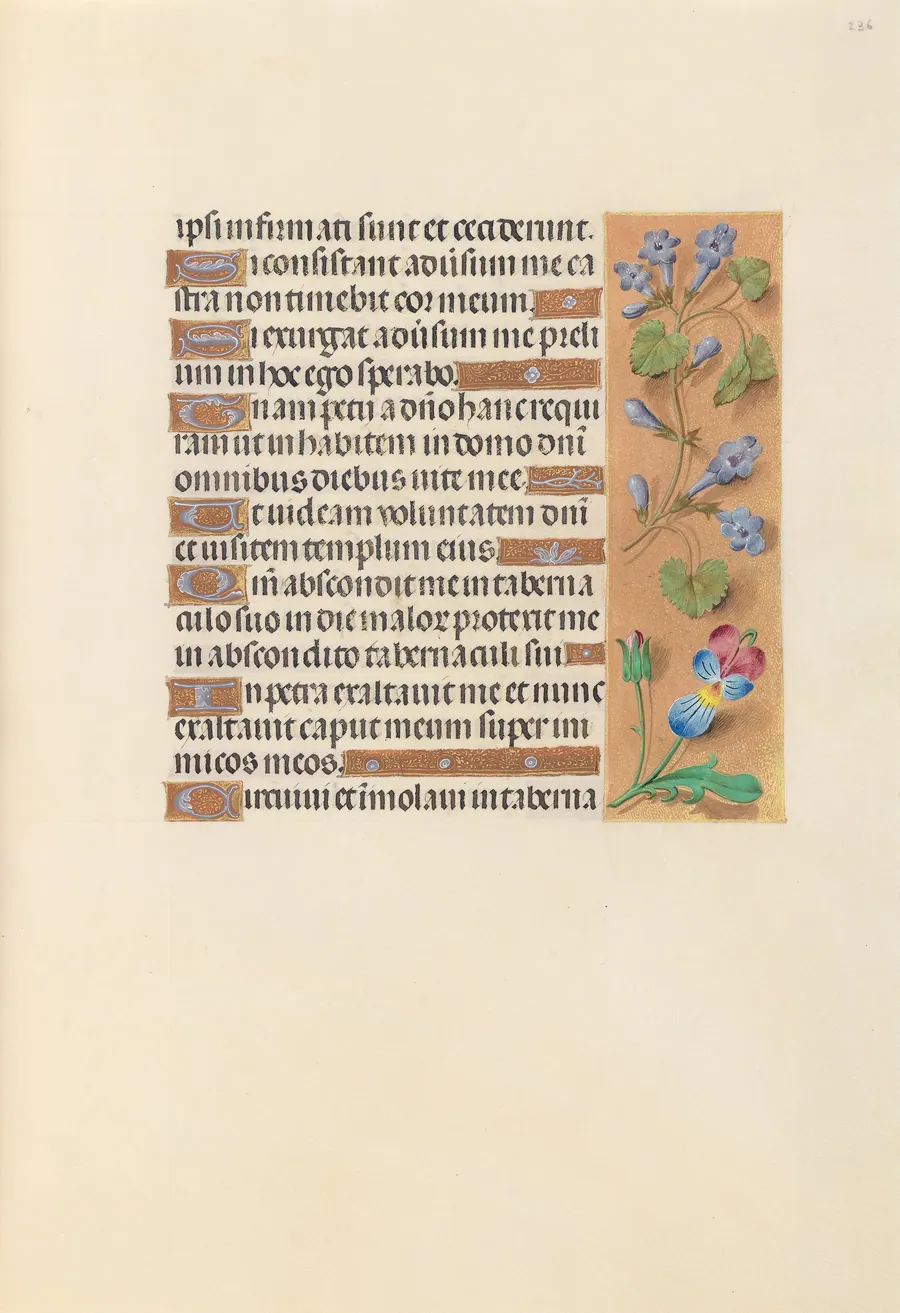 236
ipsi infirmati sunt et ceciderunt.
Si consistant adūsum me ca
stra non timebit cor meum.
Si exurgat adūsum me preli
um in hoc ego sperabo.
Unam petii a dño hanc requi
ram ut inhabitem in domo dñi
omnibus diebus uite mee.
Ut uideam voluntatem dñi
et uisitem templum eius.
Qm̄ abscondit me in taberna
culo suo in die malor protexit me
in abscondito tabernaculi sui
In petra exaltauit me et nunc
exaltauit caput meum super ini
micos meos.
Circuiui et īmolaui in taberna